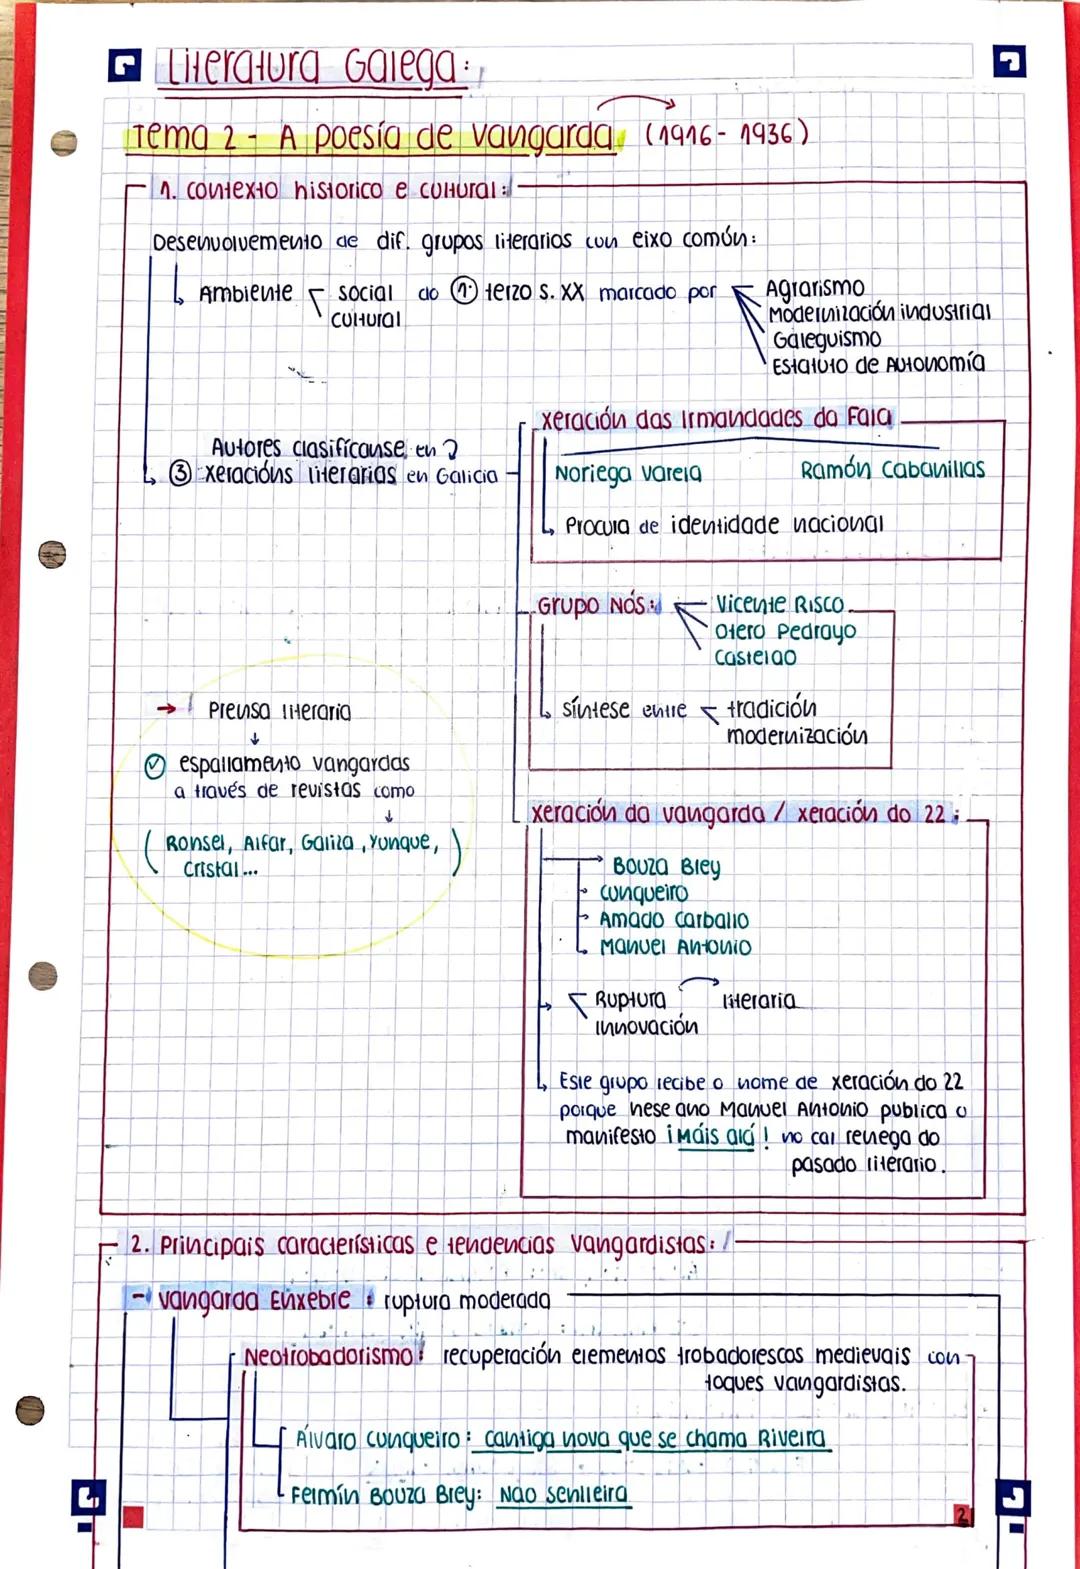 Literatura Galega:
Tema 2 - A poesía de vangarda (1916-1936)
1. contexto historico e cultural:
Desenvolvemento de dif. grupos literarios con eixo común:
Ambiente social do 1º terzo s. XX marcado por Agrarismo
cultural
Modernización industrial
Galeguismo
Estatuto de Autonomía
Autores clasifícanse en
③ xeracións literarias en Galicia
xeración das Irmandades da Fala
Noriega Varela Ramón Cabanillas
Procura de identidade nacional
Grupo Nós: Vicente Risco
Otero Pedrayo
Castelao
síntese entre tradición
modernización
→ Prensa literaria
espallamento vangardas
a través de revistas como
(Ronsel, Alfar, Galiza, Yunque,
Cristal...)
xeración da vangarda / xeración do 22:
Bouza Brey
Cunqueiro
Amado Carballo
Manuel Antonio
Ruptura literaria
innovación
Este grupo recibe o nome de xeración do 22
porque nese ano Manuel Antonio publica o
manifesto ¡Máis alá! no cal renega do
pasado literario.
2. Principais características e tendencias vangardistas:
- vangarda Enxebre: ruptura moderada
Neotrobadorismo: recuperación elementos trobadorescos medievais con
toques vangardistas.
Álvaro Cunqueiro: cantiga nova que se chama Riveira
Fermín Bouza Brey: Nao senlleira
2